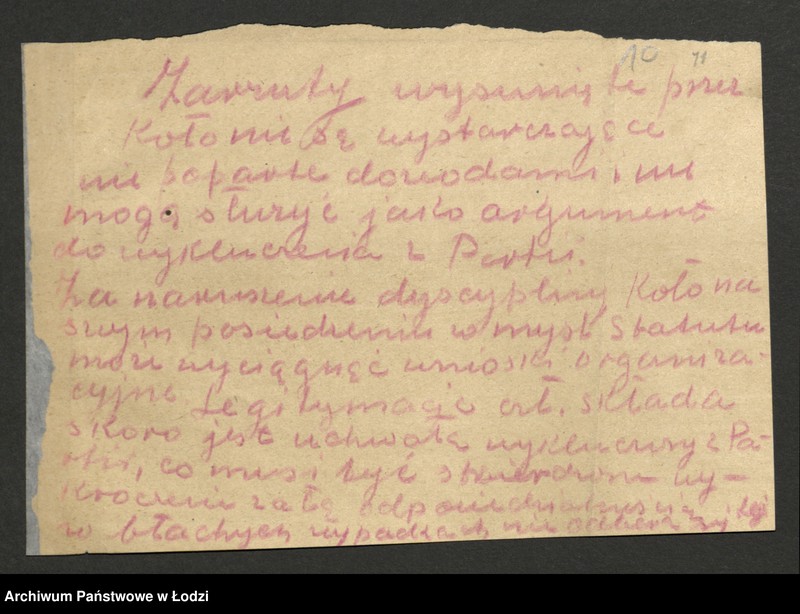 10 11
Zarzuty wysunięte przez
Koło nie są wystarczające
nie poparte dowodami, nie
mogą służyć jako argument
do wykluczenia z Partii.
Za naruszenie dyscypliny Koło na
swym posiedzeniu w myśl Statutu
może wyciągnąć wnioski organiza-
cyjne. Legitymacje czł. składa
skoro jest uchwała wykluczony z Pa-
rtii, co musi być stwierdzone wy-
kroczenie za tą odpowiedzialnością
w błachych wypadkach nie odbiera się Leg.
Archiwum Państwowe w Łodzi